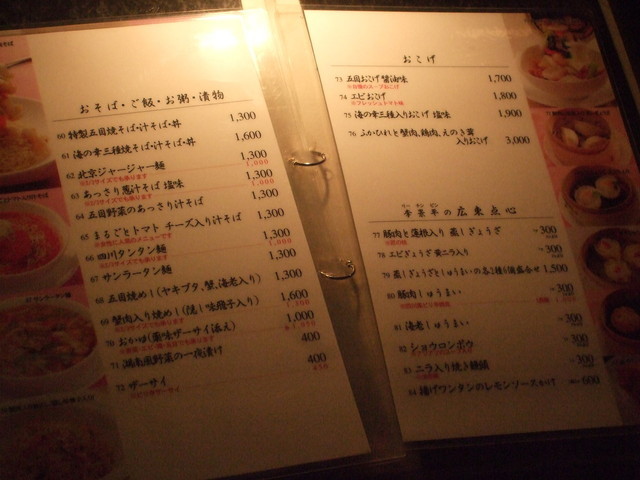 おそば・ご飯・お粥・漬物
60 特製五目焼そば・汁そば・丼 1,300
61 海の幸三種焼そば・汁そば・丼 1,600
62 北京ジャージャー麺 1,300
1,000
63 あっさり葱汁そば 塩味 1,300
1,000
64 五目野菜のあっさり汁そば 1,300
65 まるごとトマト チーズ入り汁そば 1,300
66 四川タンタン麺 1,300
1,000
67 サンラータン麺 1,300
68 五目焼めし(ヤキブタ、蟹、海老入り) 1,300
69 蟹肉入り焼めし(隠し味団子入り) 1,600
1,300
70 おかゆ(薬味ザーサイ添え) 1,000
71 湖南風野菜の一夜漬け 400
72 ザーサイ 400
おこげ
73 五目おこげ 醤油味 1,700
74 エビおこげ 1,800
※フレッシュトマト味
75 海の幸三種入りおこげ 塩味 1,900
76 ふかひれと蟹肉、鶏肉、えのき茸
入りおこげ 3,000
の広東点心
77 豚肉と蓮根入り 蒸しぎょうざ 300
78 エビぎょうざ 黄ニラ入り 300
79 蒸しぎょうざとしゅうまいの各2個 盛合せ 1,500
80 豚肉しゅうまい 300
81 海老しゅうまい 300
82 ショウロンポウ 300
83 ニラ入り焼き饅頭 300
84 揚げワンタンのレモンソースかけ 600